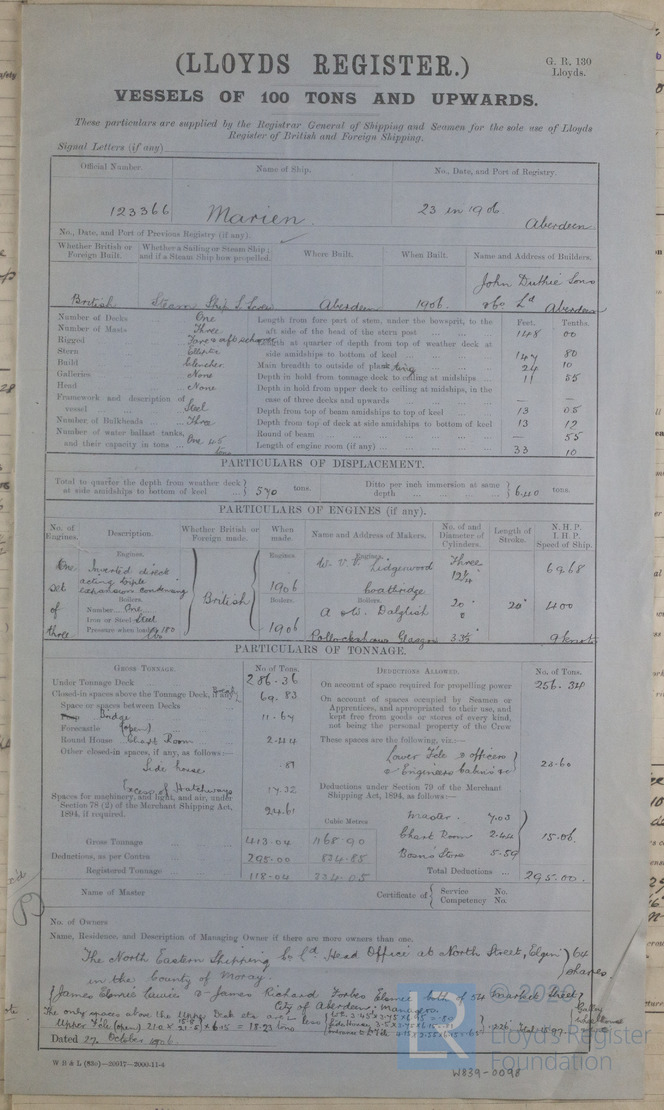 (LLOYDS REGISTER.)
G. R. 130
Lloyds.
VESSELS OF 100 TONS AND UPWARDS.
These particulars are supplied by the Registrar General of Shipping and Seamen for the sole use of Lloyds
Register of British and Foreign Shipping.
Signal Letters (if any)
Official Number. Name of Ship. No., Date, and Port of Registry.
123366 Marien 23 in 1906. Aberdeen
No., Date, and Port of Previous Registry (if any).
Whether British or Foreign Built. Whether a Sailing or Steam Ship; and if a Steam Ship how propelled. Where Built. When Built. Name and Address of Builders.
British Steam Ship S. Screw Aberdeen 1906. John Duthie Sons & Co Ld Aberdeen
Number of Decks One Length from fore part of stem, under the bowsprit, to the Feet. Tenths.
Number of Masts Three aft side of the head of the stern post 148 00
Rigged Fore & aft schooner Length at quarter of depth from top of weather deck at
Stern Elliptic side amidships to bottom of keel 147 80
Build Clencher Main breadth to outside of plating 24 10
Galleries None Depth in hold from tonnage deck to ceiling at midships 11 55
Head None Depth in hold from upper deck to ceiling at midships, in the
Framework and description of vessel Steel case of three decks and upwards — —
Depth from top of beam amidships to top of keel 13 05
Number of Bulkheads Three Depth from top of deck at side amidships to bottom of keel 13 12
Number of water ballast tanks, Round of beam — 55
and their capacity in tons One 45 tons Length of engine room (if any) 33 10
PARTICULARS OF DISPLACEMENT.
Total to quarter the depth from weather deck at side amidships to bottom of keel 570 tons. Ditto per inch immersion at same depth 6.40 tons.
PARTICULARS OF ENGINES (if any).
No. of Engines. Description. Whether British or Foreign made. When made. Name and Address of Makers. No. of and Diameter of Cylinders. Length of Stroke. N. H. P. I. H. P. Speed of Ship.
Engines. Engines Engines.
One Inverted direct W. V. V. Lidgewood Three 69.68
acting triple 12¼"
Set expansion condensing British 1906 Coatbridge
Boilers. Boilers. Boilers.
of Number One A & W. Dalglish 20" 20" 400
Iron or Steel Steel
three Pressure when loaded 180 lbs 1906 Pollockshaws Glasgow 33½" 9 knots
PARTICULARS OF TONNAGE.
GROSS TONNAGE. No of Tons. DEDUCTIONS ALLOWED. No. of Tons.
Under Tonnage Deck 286.36 On account of space required for propelling power 256.34
Closed-in spaces above the Tonnage Deck, if any Break 69.83 On account of spaces occupied by Seamen or
Space or spaces between Decks Apprentices, and appropriated to their use, and
Bridge 11.64 kept free from goods or stores of every kind,
Forecastle (open) not being the personal property of the Crew
Round House Chart Room 2.44 These spaces are the following, viz.:—
Other closed-in spaces, if any, as follows:— Lower Fcle & officers
Side house .87 & Engineers cabins &c 23.60
Excess of Hatchways 17.32 Deductions under Section 79 of the Merchant
Spaces for machinery, and light, and air, under Shipping Act, 1894, as follows:—
Section 78 (2) of the Merchant Shipping Act, 24.61
1894, if required. Cubic Metres Master 7.03
Chart Room 2.44 15.06
Gross Tonnage 413.04 1168.90
Deductions, as per Contra 295.00 834.85 Bosns Store 5.59
Registered Tonnage 118.04 334.05 Total Deductions 295.00
Name of Master Certificate of Service No. Competency No.
No. of Owners
Name, Residence, and Description of Managing Owner if there are more owners than one.
The North Eastern Shipping Co. Ld. Head Office at North Street, Elgin 64
in the County of Moray. shares
James Elsmie & James Richard Forbes Elsmie both of 54 Marischal Street
City of Aberdeen Managers
The only spaces above the Upper Deck etc are
Upper Fcle (open)
Dated 27 October 1906.
W B & L (83c)—20917—2000-11-4
W839-0098
© 2020
LR
Lloyd's Register
Foundation